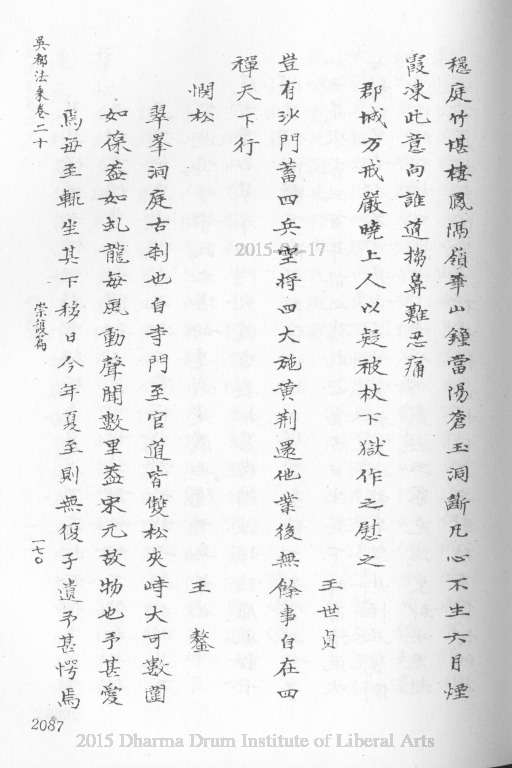 穩庭竹堪棲鳳隔嶺華山鐘當陽蒼玉洞斷凡心不生六月煙
霞凍此意向誰道搊鼻難忍痛
郡城方戒嚴曉上人以疑被杖下獄作之慰之
王世貞
豈有沙門蓄四兵空将四大施黄荆還他業後無餘事自在四
禪天下行
憫松
王鏊
翠峯洞庭古刹也自寺門至官道皆雙松夾峙大可數圍
如葆蓋如虬龍每風動聲聞數里葢宋元故物也予甚愛
焉每至輒坐其下移日今年夏至則無復孑遺予甚愕焉
吳都法乘卷二十
崇護篇
一七〇
2087
2015-04-17
2015 Dharma Drum Institute of Liberal Arts